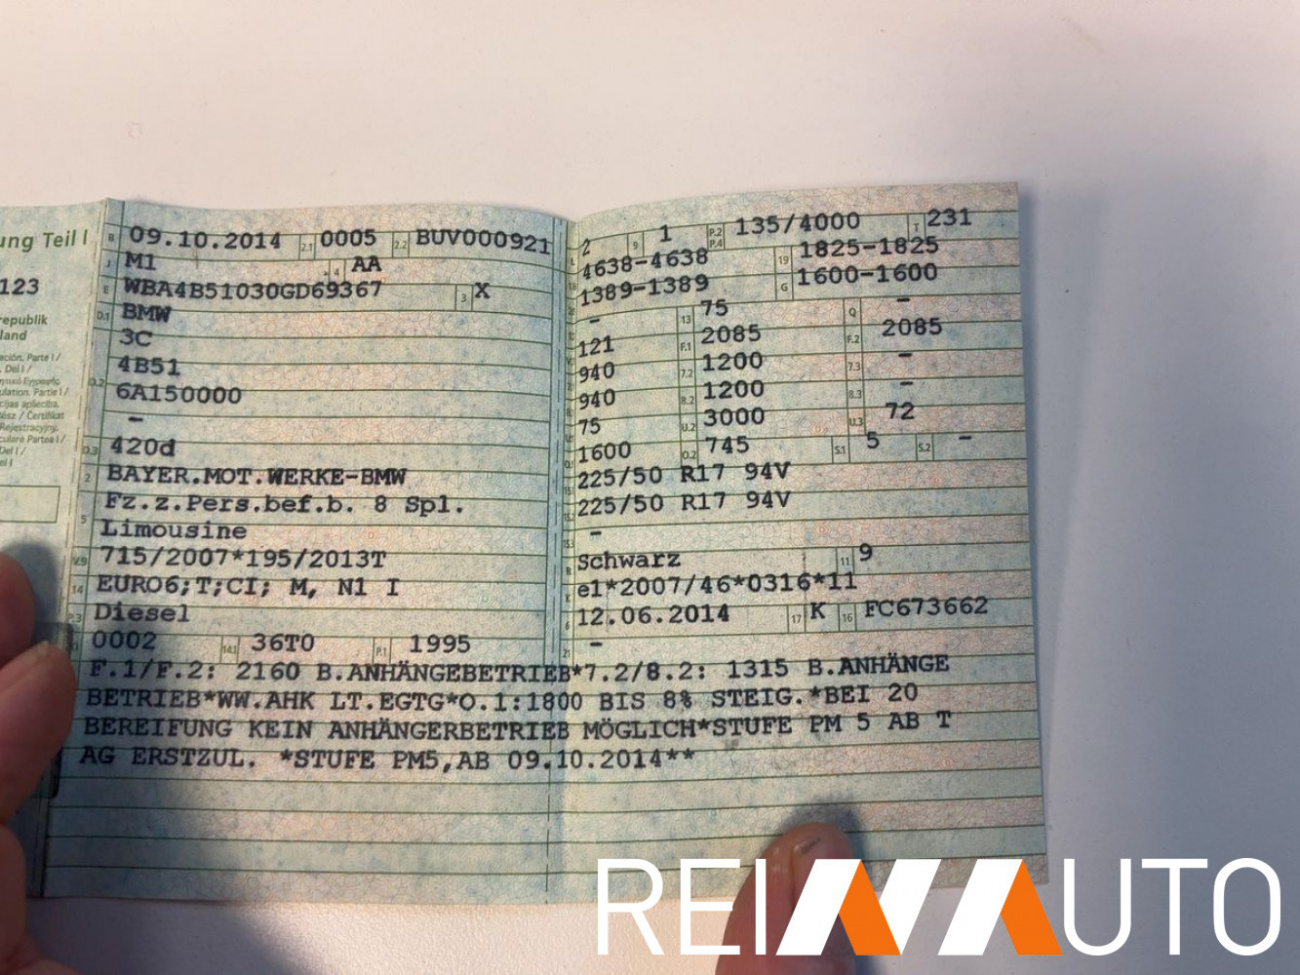 ung Teil I
123
republik
land
B 09.10.2014 2.1 0005 2.2 BUV000921
J M1 4 AA
E WBA4B51030GD69367 3 X
D.1 BMW
3C
4B51
D.2 6A150000
–
D.3 420d
2 BAYER.MOT.WERKE-BMW
Fz.z.Pers.bef.b. 8 Spl.
5 Limousine
V.9 715/2007*195/2013T
14 EURO6;T;CI; M, N1 I
P.3 Diesel
0002 14.1 36T0 P.1 1995
2 9 1 P.2 P.4 135/4000 T 231
4638-4638 19 1825-1825
1389-1389 G 1600-1600
– 13 75 Q –
121 F.1 2085 F.2 2085
940 7.2 1200 7.3 –
940 8.2 1200 8.3 –
75 U.2 3000 U.3 72
1600 O.2 745 S.1 5 S.2 –
225/50 R17 94V
225/50 R17 94V
–
Schwarz 11 9
e1*2007/46*0316*11
6 12.06.2014 17 K 16 FC673662
21 –
F.1/F.2: 2160 B.ANHÄNGEBETRIEB*7.2/8.2: 1315 B.ANHÄNGE
BETRIEB*WW.AHK LT.EGTG*O.1:1800 BIS 8% STEIG.*BEI 20
BEREIFUNG KEIN ANHÄNGERBETRIEB MÖGLICH*STUFE PM 5 AB T
AG ERSTZUL. *STUFE PM5,AB 09.10.2014**
REINAUTO